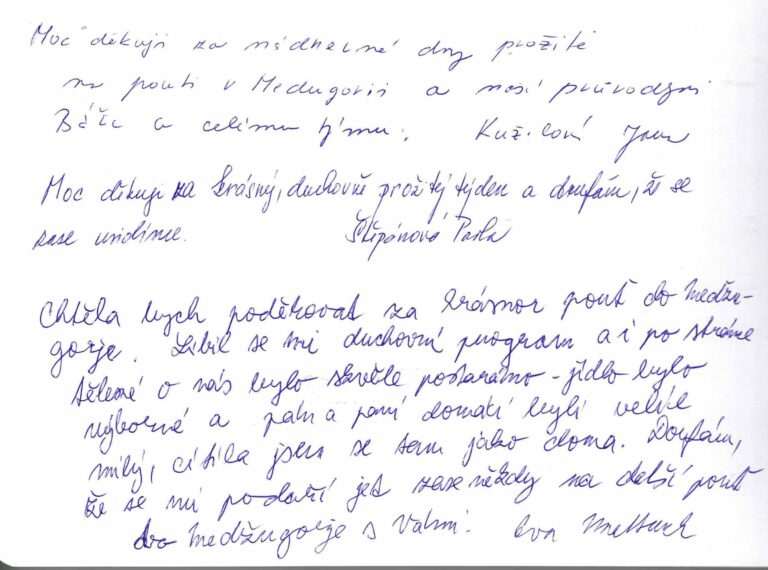 Moc děkuji za nádherné dny prožité
na pouti v Medugorii a naší průvodkyni
Báře a celému týmu. Kužílková Jana
Moc děkuji za krásný, duchovně prožitý týden a doufám, že se
zase uvidíme. Štěpánová Pavla
Chtěla bych poděkovat za krásnou pouť do Medžu-
gorje. Líbil se mi duchovní program a i po stránce
tělesné o nás bylo skvěle postaráno - jídlo bylo
výborné a pan a paní domácí byli velice
milý, cítila jsem se tam jako doma. Doufám,
že se mi podaří jet zase někdy na další pouť
do Medžugorje s Vámi. Eva